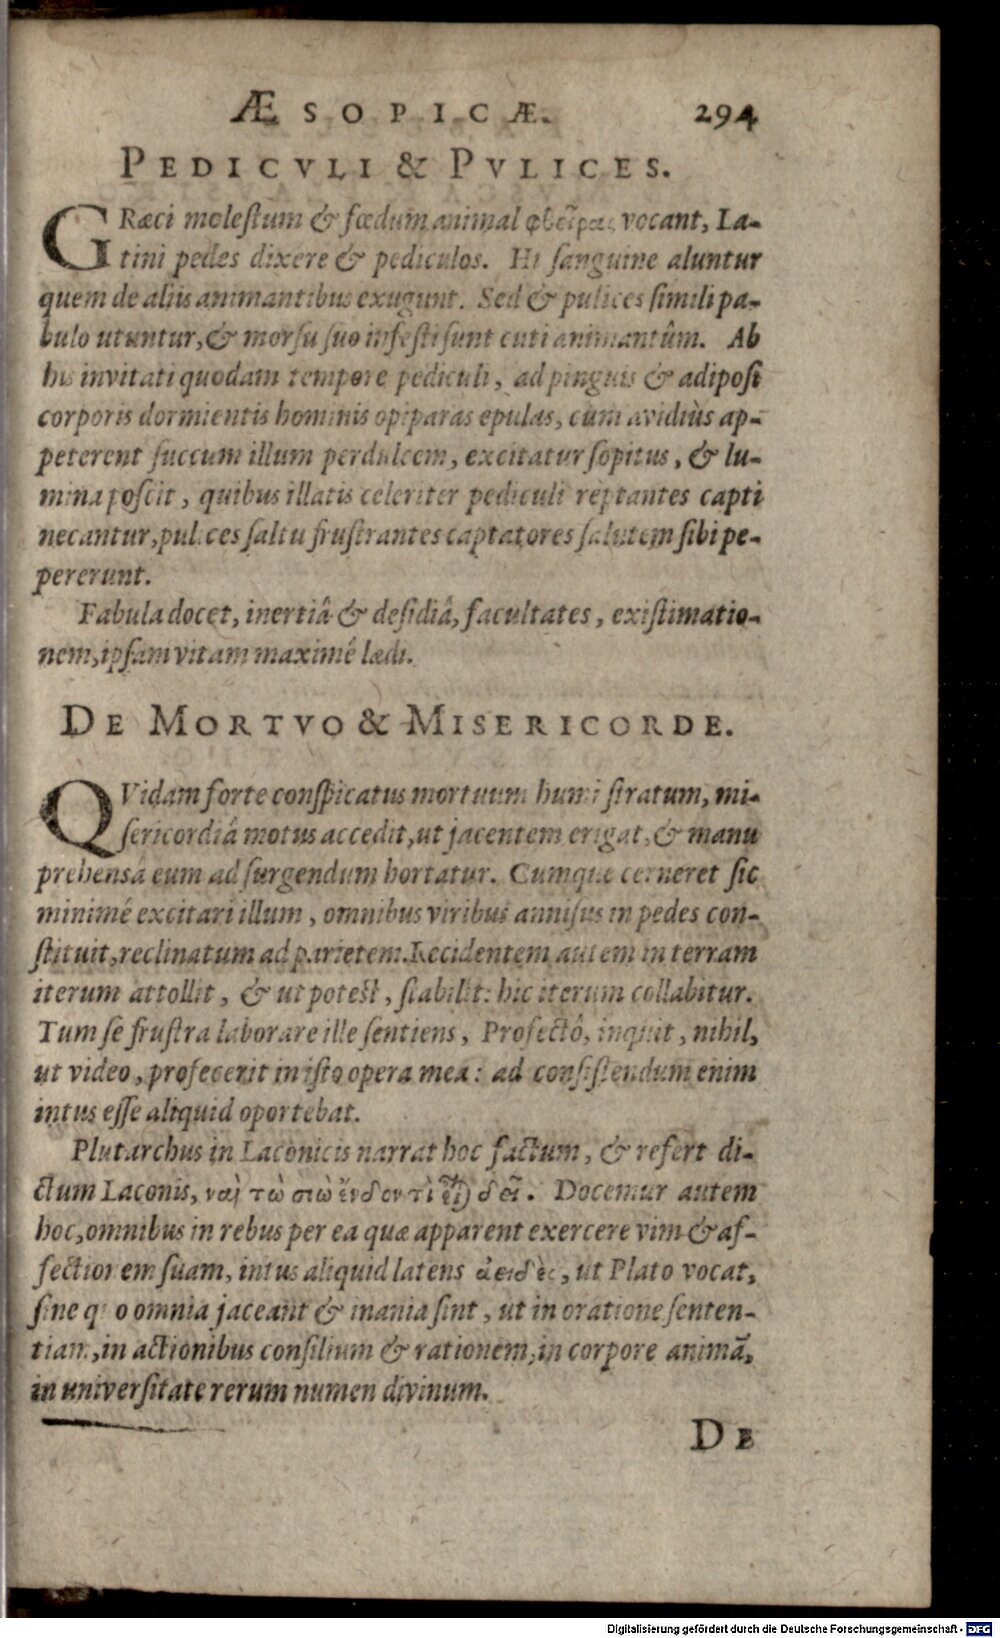 ÆSOPICÆ. 294
PEDICVLI & PVLICES.
GRæci molestum & fœdum animal φθεῖρας vocant, La-
tini pedes dixere & pediculos. Hi sanguine aluntur
quem de aliis animantibus exugunt. Sed & pulices simili pa-
bulo utuntur, & morsu suo infesti sunt cuti animantûm. Ab
his invitati quodam tempore pediculi, ad pinguis & adiposi
corporis dormientis hominis opiparas epulas, cùm avidiùs ap-
peterent succum illum perdulcem, excitatur sopitus, & lu-
mina poscit, quibus illatis celeriter pediculi reptantes capti
necantur, pulices saltu frustrantes captatores salutem sibi pe-
pererunt.
Fabula docet, inertiâ & desidiâ, facultates, existimatio-
nem, ipsam vitam maximé lædi.
DE MORTVO & MISERICORDE.
QVidam forte conspicatus mortuum humi stratum, mi-
sericordiâ motus accedit, ut jacentem erigat, & manu
prehensâ eum ad surgendum hortatur. Cumque cerneret sic
minimé excitari illum, omnibus viribus annisus in pedes con-
stituit, reclinatum ad parietem. Recidentem autem in terram
iterum attollit, & ut potest, stabilit: hic iterum collabitur.
Tum se frustra laborare ille sentiens, Profectò, inquit, nihil,
ut video, profecerit in isto opera mea: ad consistendum enim
intus esse aliquid oportebat.
Plutarchus in Laconicis narrat hoc factum, & refert di-
ctum Laconis, ναὶ τὼ σιὼ ἔνδον τὶ δεῖ. Docemur autem
hoc, omnibus in rebus per ea quæ apparent exercere vim & af-
fectionem suam, intus aliquid latens ἀειδὲς, ut Plato vocat,
sine quo omnia jaceant & inania sint, ut in oratione senten-
tiam, in actionibus consilium & rationem, in corpore animā,
in universitate rerum numen divinum.
DE
Digitalisierung gefördert durch die Deutsche Forschungsgemeinschaft - DFG